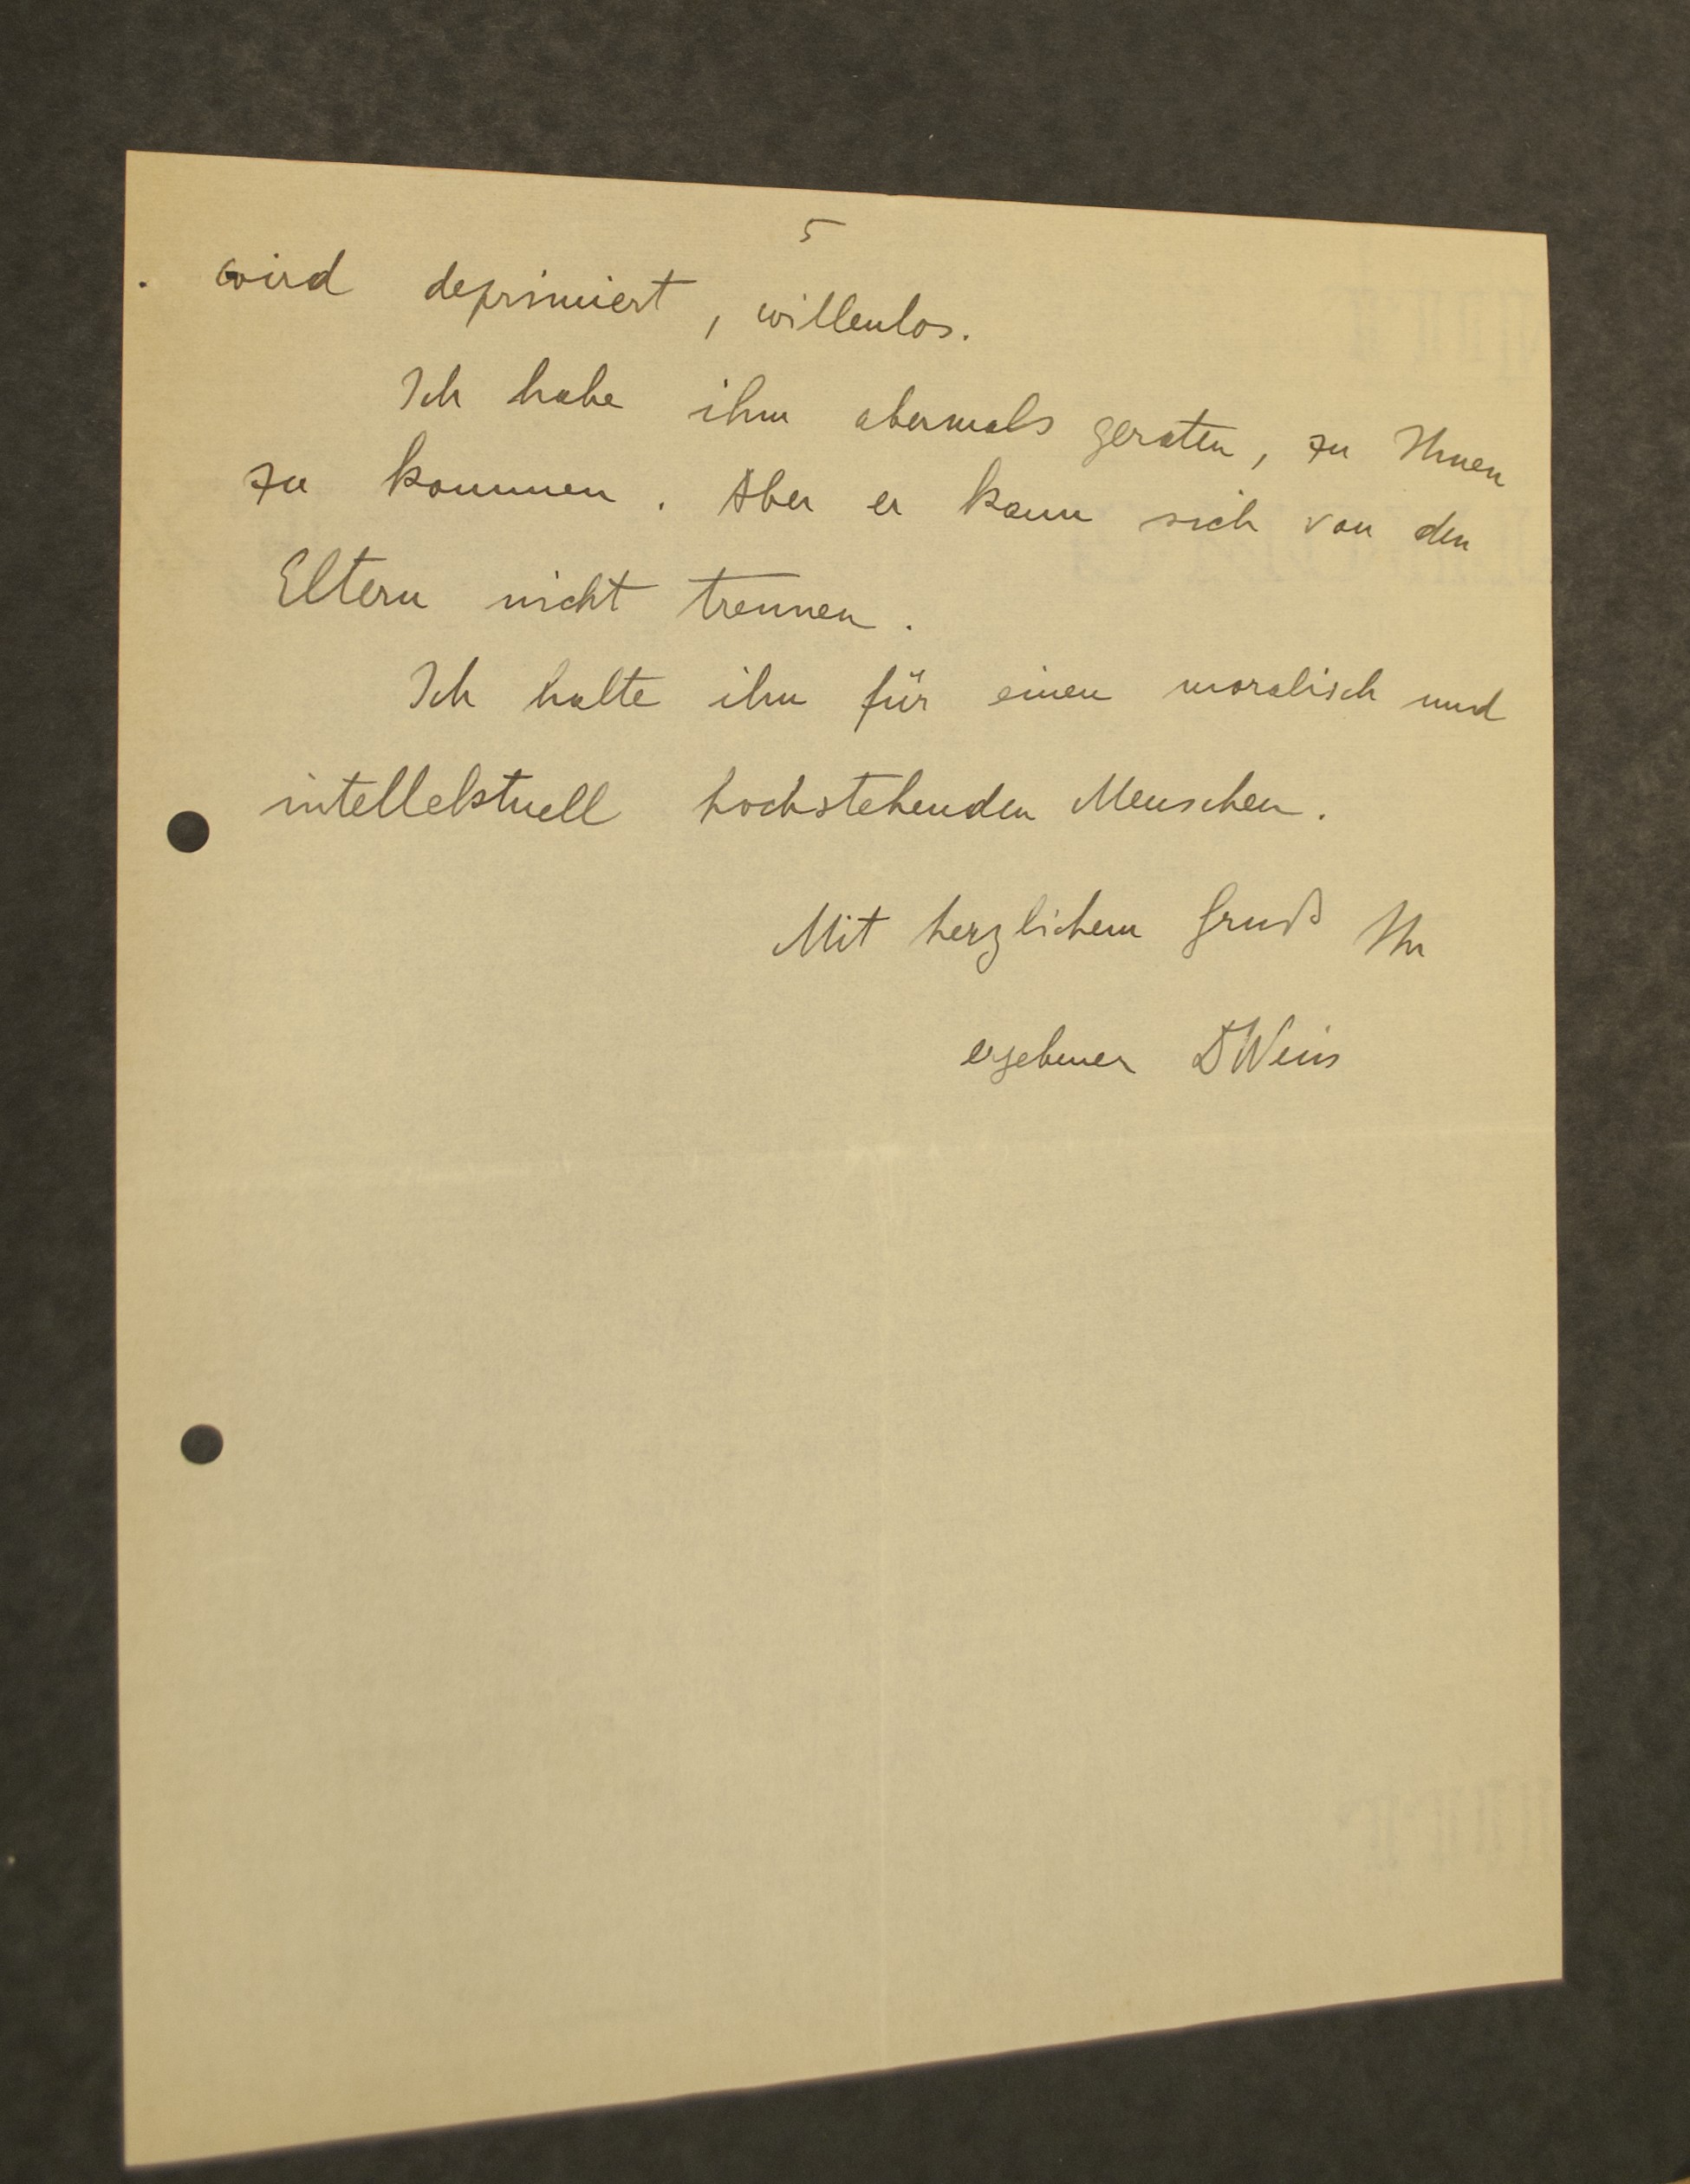 5
wird deprimiert, willenlos.
Ich habe ihm abermals geraten, zu Ihnen
zu kommen. Aber er kann sich von den
Eltern nicht trennen.
Ich halte ihn für einen moralisch und
intellektuell hochstehenden Menschen.
Mit herzlichem Gruß Ihr
ergebener DWeiss